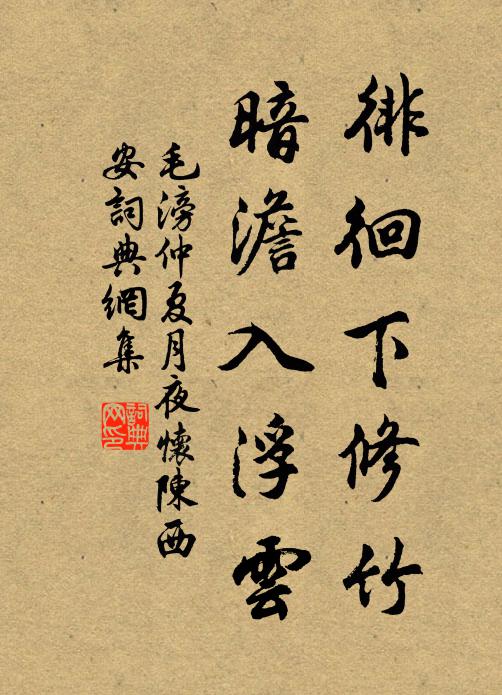 徘徊下修竹
暗澹入浮雲
毛滂仲夏月夜懷陳西
安詞典網集
詞典网印